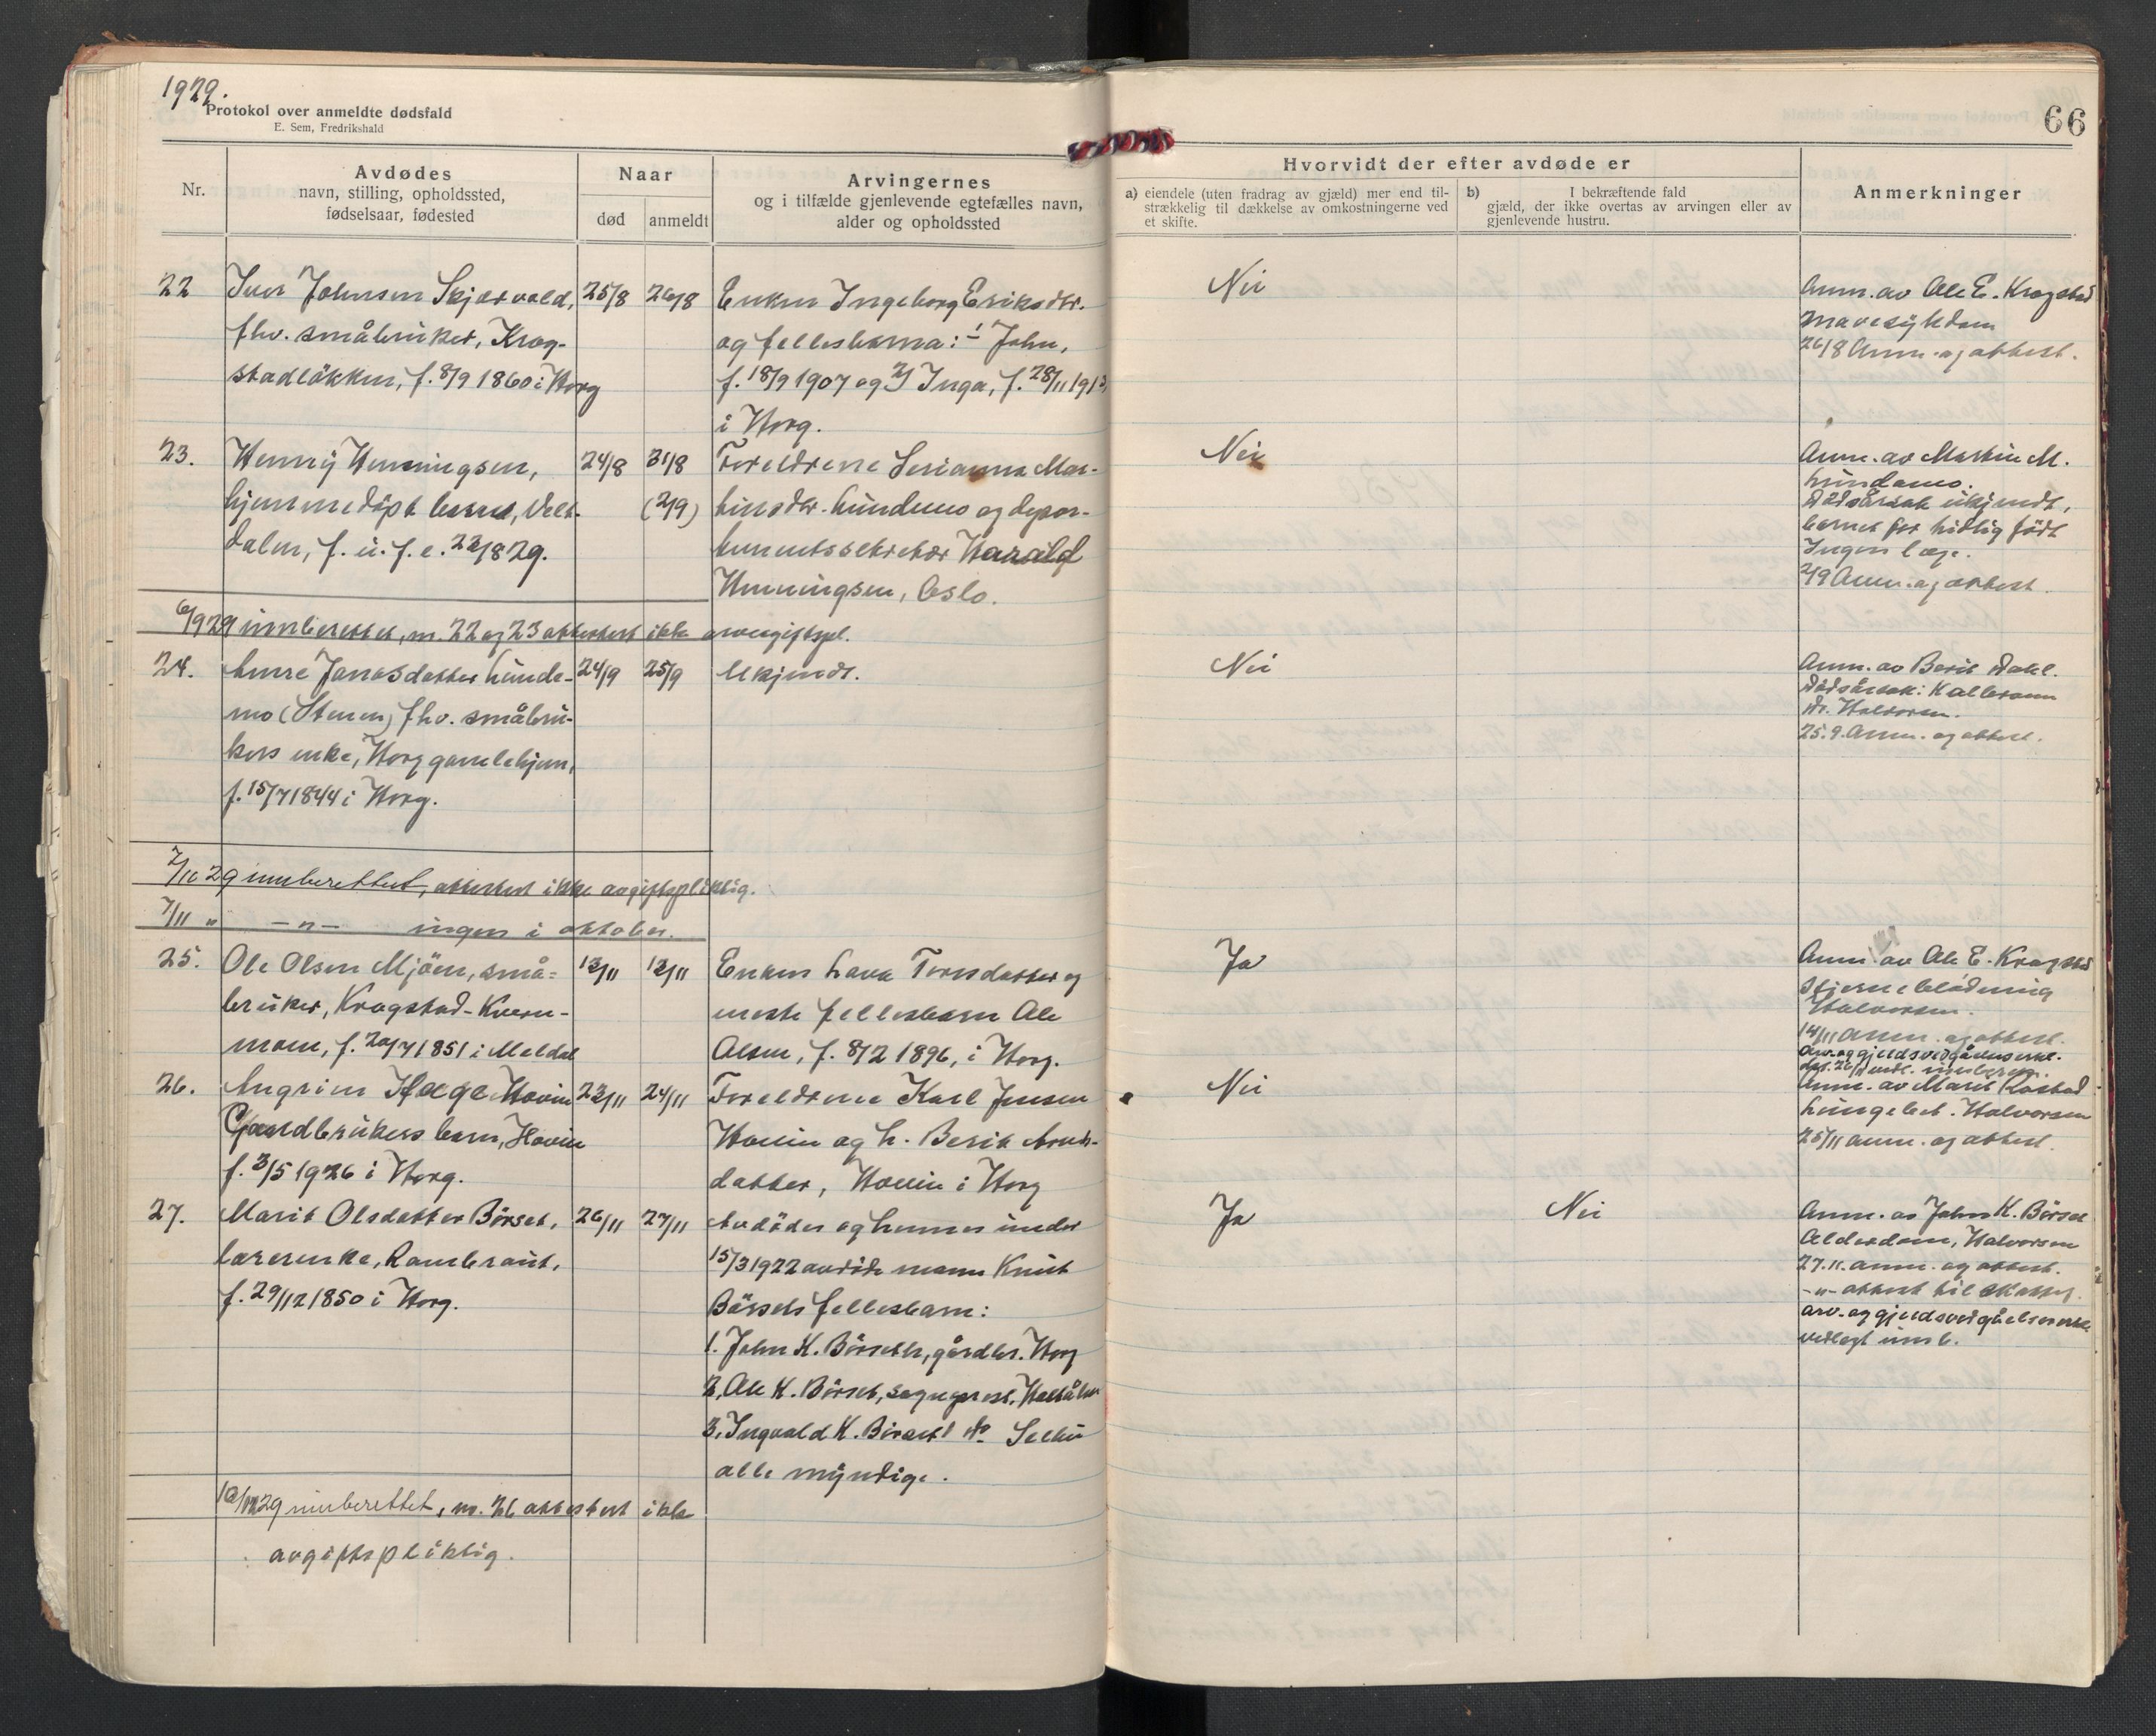 1929.
Protokol over anmeldte dødsfald
E. Sem, Fredrikshald
66
Nr.
Avdødes
navn, stilling, opholdssted,
fødselsaar, fødested
Naar
død
anmeldt
Arvingernes
og i tilfælde gjenlevende egtefælles navn,
alder og opholdssted
Hvorvidt der efter avdøde er
a) eiendele (uten fradrag av gjæld) mer end til-
strækkelig til dækkelse av omkostningerne ved
et skifte.
b) I bekræftende fald
gjæld, der ikke overtas av arvingen eller av
gjenlevende hustru.
Anmerkninger
22
Iver Johnsen Skjærvold,
fhv. småbruker, Krog-
stadløkken, f. 8/9 1860 i Horg
25/8
26/8
Enken Ingeborg Eriksdtr.
og fellesbarna: 1/ John,
f. 18/9 1907 og 2/ Inga, f. 28/11 1913,
i Horg.
Nei
Anm. av Ole E. Krogstad
Mavesykdom
26/8 Anm. og attest.
23.
Henry Henningsen,
hjemmedöpt barn,
dalen, f. u. e. 23/8 29.
24/8
31/8
(2/9)
Foreldrene Serianna Mar-
tinsdtr. Lundemo og depar-
tementssekretær Harald
Henningsen, Oslo.
Nei
Anm. av Martin M.
Lundamo.
Dödsårsak ukjendt,
barnet for tidlig födt
Ingen læge.
2/9 Anm. og attest.
6/9 29 innberettet, nr. 22 og 23 attestert ikke arveavgiftspl.
24.
Anne Jonasdatter Lunde-
mo (Stenen) fhv. småbru-
kers enke, Horg gamlehjem,
f. 15/7 1844 i Horg.
24/9
25/9
Ukjendt.
Nei
Anm. av Berit Dahl.
Dödsårsak: Kallbrann
Dr. Halvorsen.
25.9. Anm. og attest.
7/10 29 innberettet, attestert ikke avgiftspliktig.
7/11 " -"- ingen i oktober.
25.
Ole Olsen Mjöen, små=
bruker, Krogstad-Kvern-
moen, f. 20/7 1851 i Meldal
13/11
13/11
Enken Lava Toresdatter og
eneste fellesbarn Ole
Olsen, f. 8/2 1896, i Horg.
Ja
Anm. av Ole E. Krogstad
Hjerneblödning
Halvorsen.
14/11 anm. og attest.
Arv. og gjeldsvedgåelseserkl.
26.
Angrim Hege Hovin
Gaardbrukers barn, Hovin
f. 3/5 1926 i Horg.
23/11
24/11
Foreldrene Karl Jensen
Hovin og h. Berit Arnts-
datter, Hovin i Horg
Nei
Anm. av Marit Rostad
Lungebet. Halvorsen
25/11 anm. og attest.
27.
Marit Olsdatter Börset,
lærerenke, Rambraut,
f. 29/12 1850 i Horg.
26/11
27/11
Avdödes og hennes under
15/3 1922 avdöde mann Knut
Börsets fellesbarn:
1. John K. Börseth, gårdbr. Horg
2. Ole K. Börset, sogneprest,
3. Ingvald K. Börset do Selbu
alle myndige.
Ja
Nei
Anm. av John K. Börset
Alderdom, Halvorsen
27.11. anm. og attest.
-"- attest til
arv- og gjeldsvedgåelseserkl.
vedlagt innb.
10/12 29 innberettet, nr. 26 attestert ikke
avgiftspliktig.